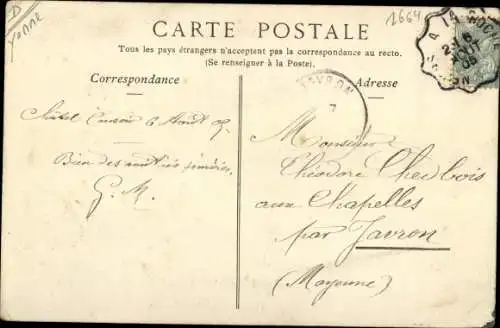 D
Yonne
1664
CARTE POSTALE
Tous les pays étrangers n'acceptent pas la correspondance au recto.
(Se renseigner à la Poste).
Correspondance
Adresse
JAVRON
7
6 Août
Bien des amitiés
G. M.
Monsieur
Théodore
aux Chapelles
par Javron
(Mayenne)